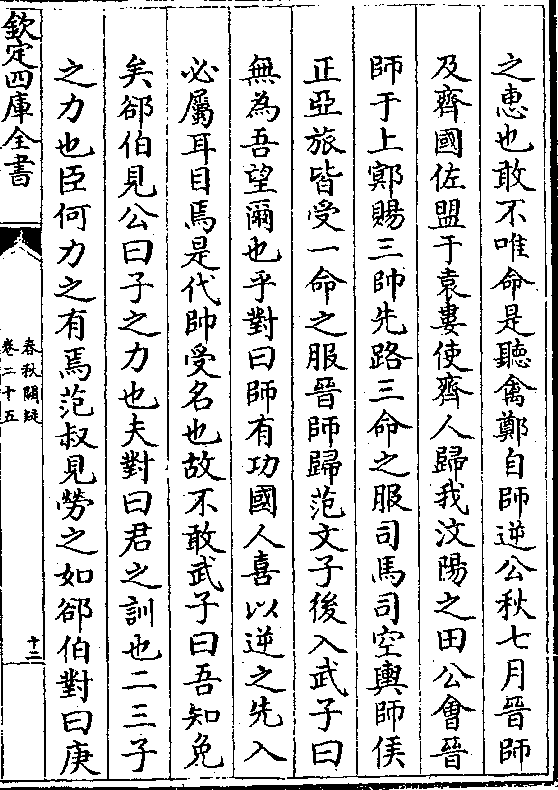 之惠也敢不唯命是聽禽鄭自師逆公秋七月晉師
及齊國佐盟于袁婁使齊人歸我汶陽之田公會晉
師于上鄍賜三帥先路三命之服司馬司空輿師侯
正亞旅皆受一命之服晉師歸范文子後入武子曰
無為吾望爾也乎對曰師有功國人喜以逆之先入
必屬耳目焉是代帥受名也故不敢武子曰吾知免
矣郤伯見公曰子之力也夫對曰君之訓也二三子
之力也臣何力之有焉范叔見勞之如郤伯對曰庚
欽定四庫全書
春秋闕疑
卷二十五
十二